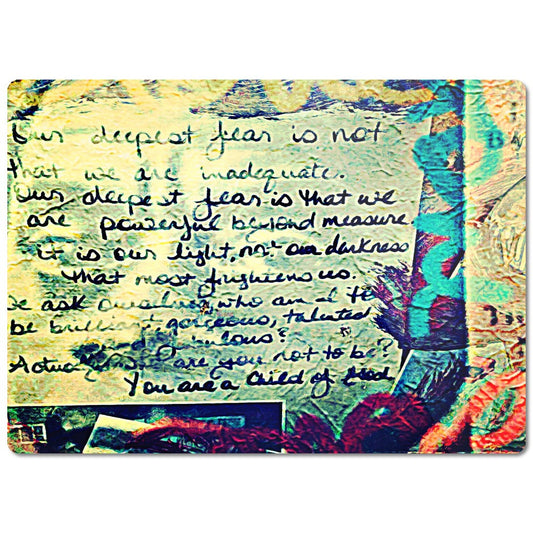 Our deepest fear is not
that we are inadequate.
Our deepest fear is that we
are powerful beyond measure
it is our light, not our darkness
that most frightens us.
we ask ourselves, who am I to
be brilliant, gorgeous, talented
and fabulous?
Actually, who are you not to be?
You are a child of God